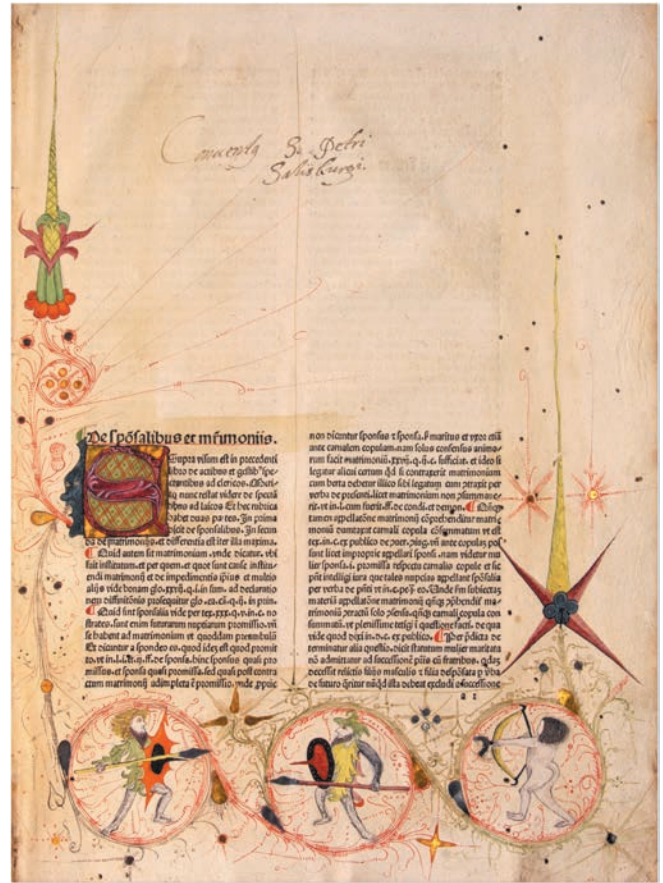 Conuentꝰ S. Petri
Salisburgi.
De spõsalibus et mr̃imoniis.
Supra visum est in precedenti
libro de actibus et gestibꝰ spe
ctantibus ad clericos.
nunc restat videre de
ctibus ad laicos Et hec rubrica
habet duas partes. In prima
de sponsalibus. In secun
da de matrimoniis. et differentia est iter illa maxima.
Quid autem sit matrimonium. vnde dicatur. vbi
fuit institutum. et per quem. et quot sunt cause institu
endi matrimonij et de impedimentis ipsius et multis
aliis vide bonam glo. xxvij. q. i. in sum. ad declaratio
nem diffinitõnis prosequitur glo. in prin.
Quid sint sponsalia vide per tex. xxx. q. v. in c. no
strates. sunt enim futurarum nuptiarum promissio. vñ
se habent ad matrimonium vt quoddam preambulũ
Et dicuntur a spondeo es. quod idez est quod promit
to. vt in l. ff. de sponsa. hinc sponsus quasi pro
missus. et sponsa quasi promissa. sed quasi post contra
ctum matrimonij adimpleta ẽ promissio. vnde ,pprie
non dicuntur sponsus ⁊ sponsa. s̃ maritus et vxor etiã
ante carnalem copulam. nam solus consensus animo
rum facit matrimoniũ. xxvij. q. ij. c. sufficiat. et ideo si
legatur alicui certum qd̃ si contraxerit matrimonium
cum berta debetur illico sibi legatum cum ꝯtraxit per
verba de presenti. licet matrimonium non ꝯsummaue
rit. vt in l. cum fuerit. ff. de condi. et demon.
tamen appellatõne matrimonij cõprehenditur matri
monij duntaxat carnali copula cõsummatum vt est
tex. in c. ex publico de conuer. ꝯiug. vñ ante copulaz pos
sunt licet improprie appellari sponsi. nam videtur mu
lier sponsa. i. promissa respectu carnalis copule et sic
pñt intelligi iura que tales nupcias appellant spõsalia
per verba de pñti vt in c. Unde ĩ m subiectaz
materiã appellatõne matrimonij qñqꝫ ꝯphendit̃ ma
trimoniũ ꝯtractũ solo ꝯsensu. qñqꝫ carnali copula con
summatũ. et plenissime tetigi ĩ questione facti. de qua
vide quod dixi in d. c. ex publico. Per ꝓdicta de
terminatur alia questio. dicit statutum mulier maritata
nõ admittatur ad successionẽ pris cũ fratribus. qdaz
decessit relictis filijs masculis ⁊ filia despõsata ꝑ v̾ba
de futuro q̃ritur nũqd̃ ista debeat excludi a successione
a 2